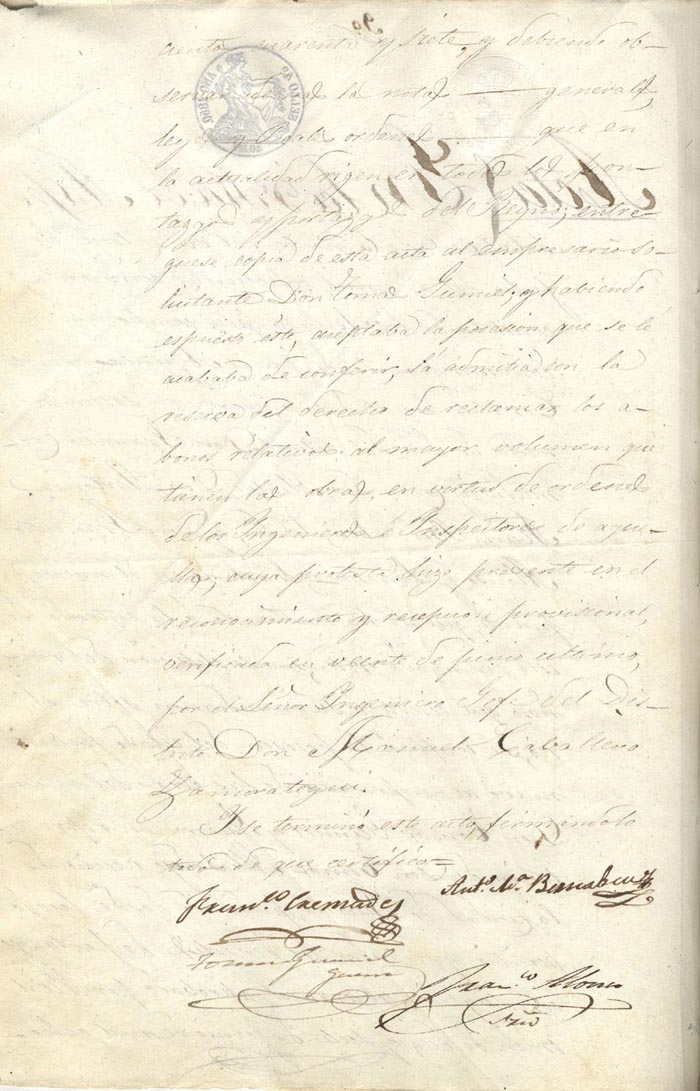 ciento cuarenta y siete, y debiendo ob-
servar la notas generales,
leyes y Reales ordenes que en
la actualidad rigen en todos los pon-
tazgos y portazgos del Reyno; entre-
guese copia de esta acta al empresario so-
licitante Don Tomas Gumiel; y habiendo
espuesto este, aceptaba la posesion que se le
acababa de conferir, la admitia con la
reserva del derecho de reclamar los a-
bonos relativos al mayor volumen que
tienen las obras, en virtud de ordenes
de los Ingenieros e Inspectores de aque-
llas; cuya protesta hizo presente en el
reconocimiento y recepcion provisional,
verificada en veente de junio ultimo,
por el Señor Ingeniero Gefe del Dis-
trito Don Manuel Caballero
Zamorategui.
Y se terminó este acto, firmandolo
todos de que certifico=
Franco. Cremades
Anto. Ma. Bernabeu
Tomas Gumiel
Franco. Alonso